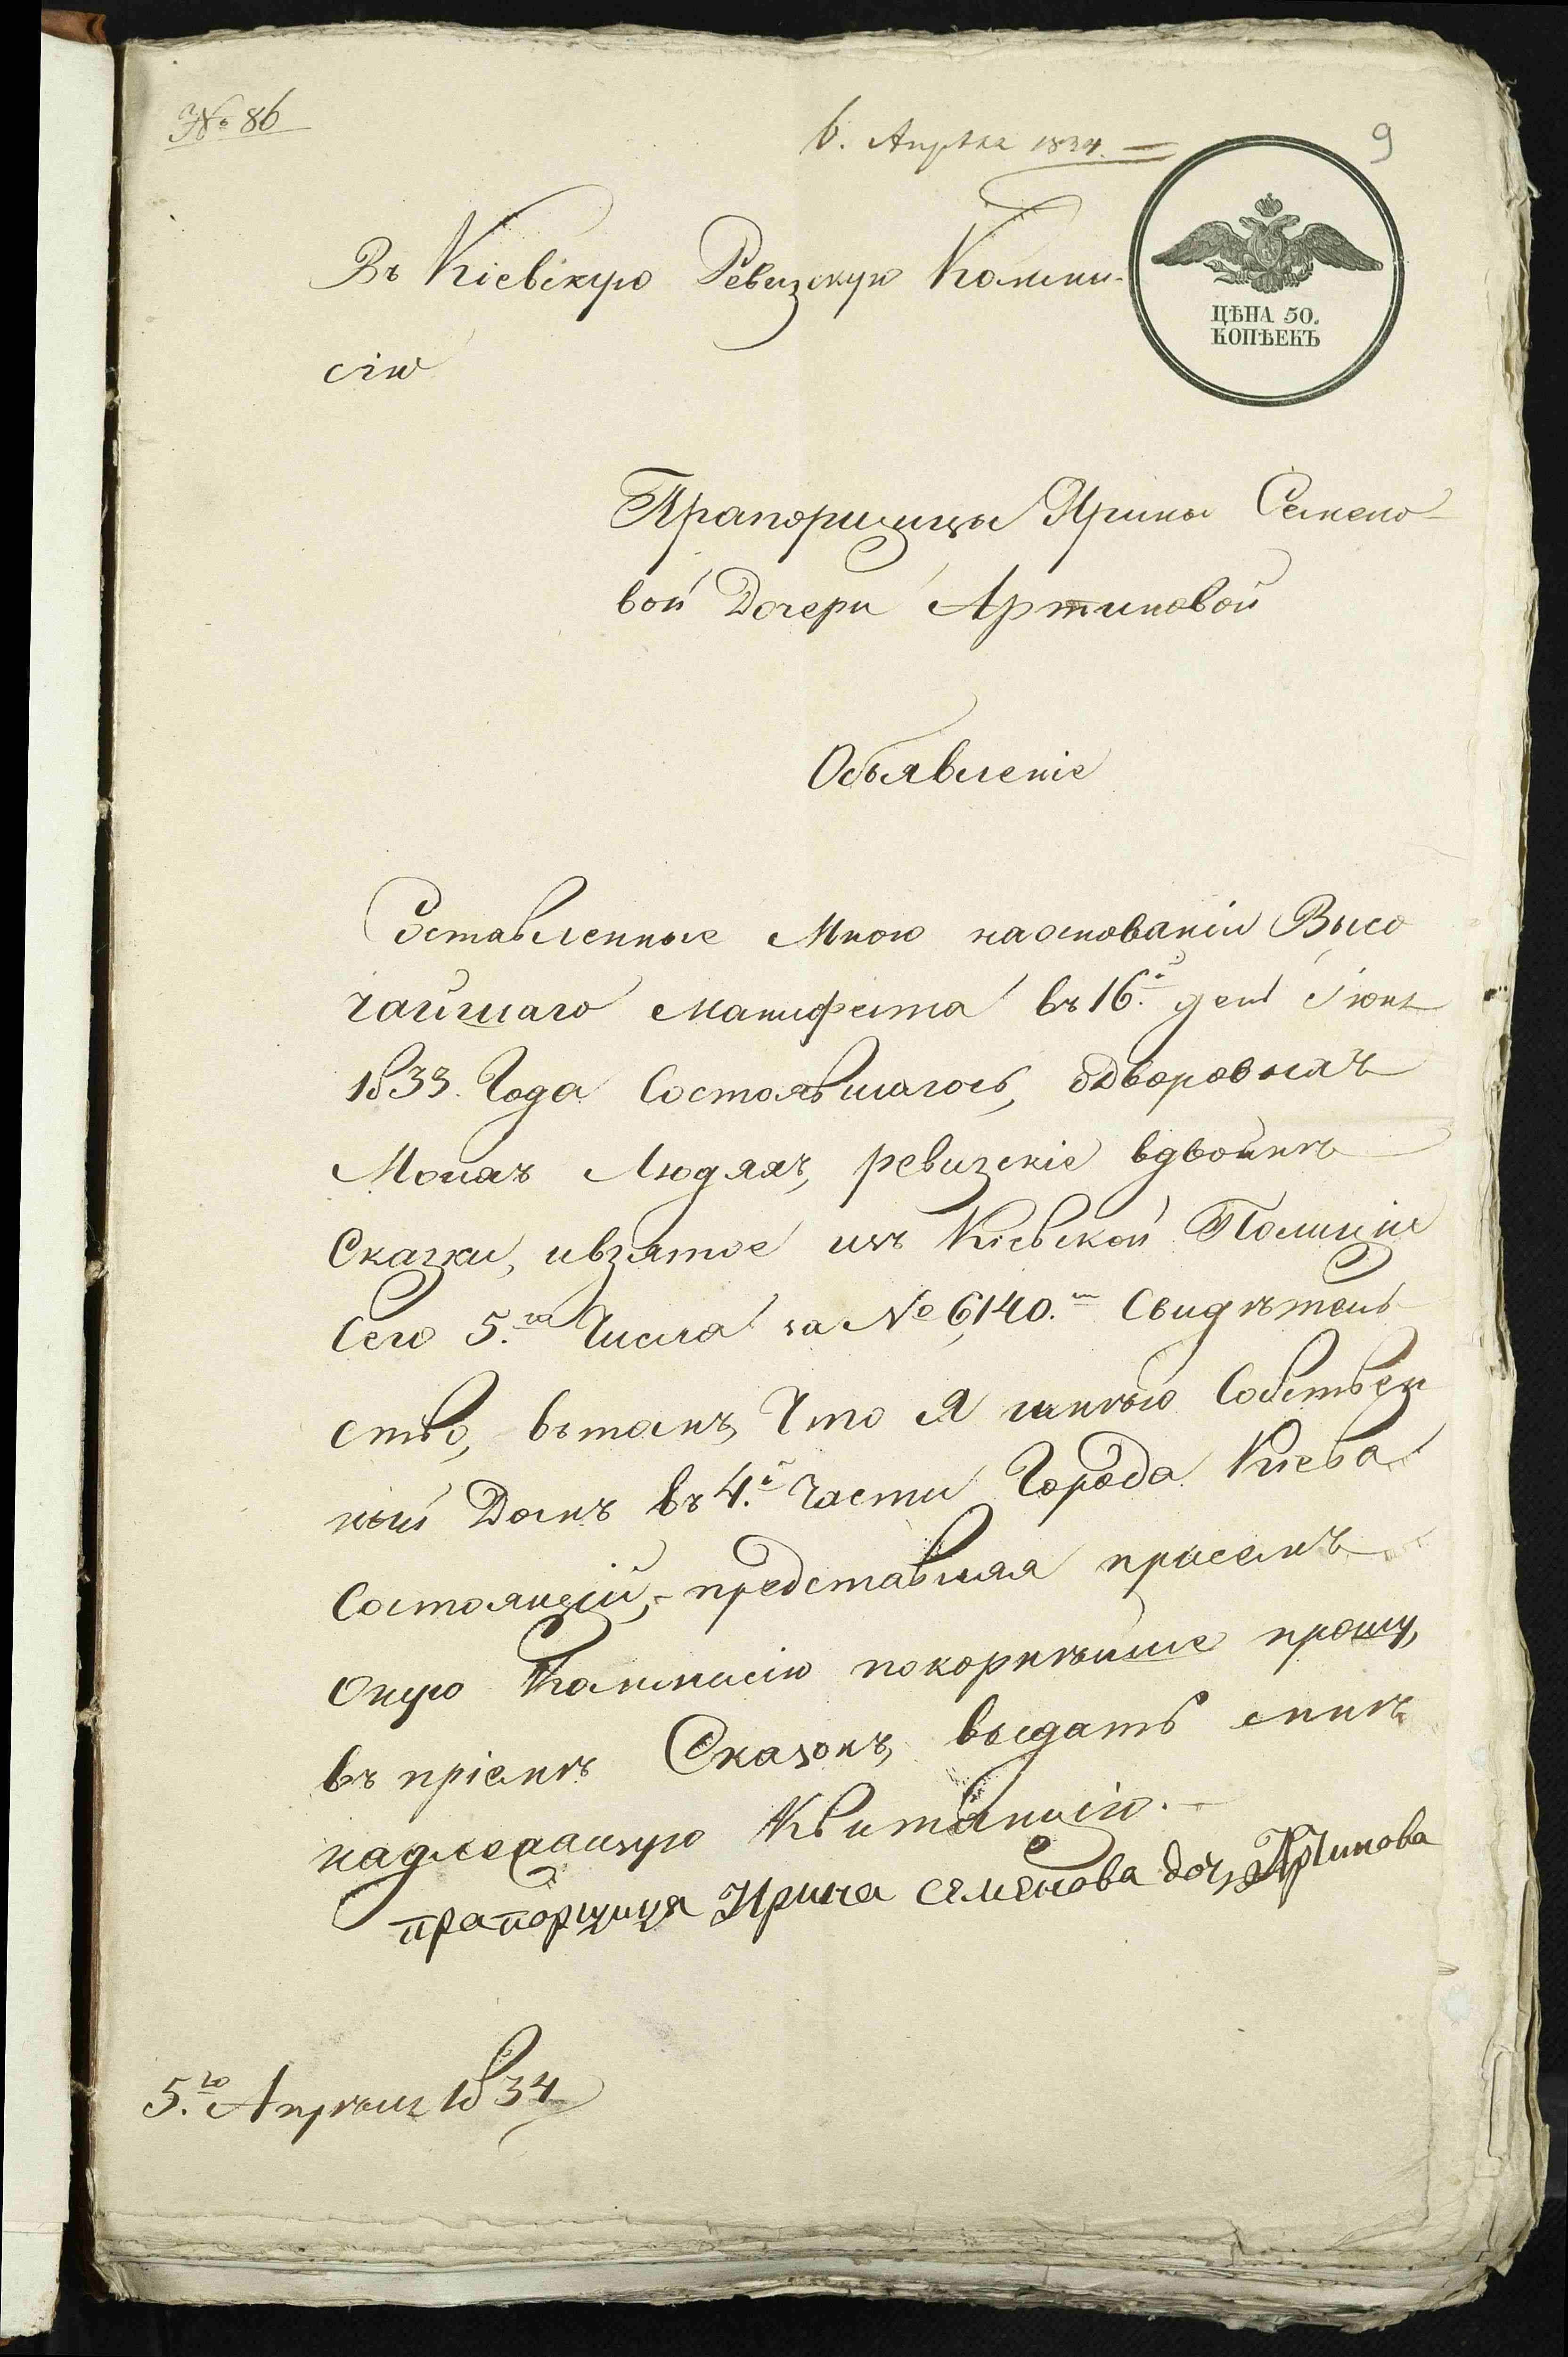 № 86
6. Апрѣля 1834.
9
Въ Кіевскую Ревизскую Комми-
сію
ЦѢНА 50.
КОПѢЕКЪ
Прапорщицы Ярины Семено-
вой Дочери Артиновой
Объявленіе
Составленные Мною наоснованіи Высо
чайшаго манифеста въ 16.й день Іюня
1833. Года Состоявшагося, одворовыхъ
Моихъ Людяхъ, ревизскіе вдвойнѣ
Сказки, ивзятое изъ Кіевской Полиціи
Сего 5.го Числа за № 6140.м Свидѣтель
ство, вътомъ, Что я имѣю Собствен
ный Домъ въ 4.й Части Города Кіева
Состоящій, представляя присемъ
Оную Коммисію покорнѣйше прошу,
въ пріемѣ Сказокъ, выдать мнѣ
надлежащую Квитанцію.
прапорщица Ирина Семенова дочь Артинова
5.го Апрѣля 1834